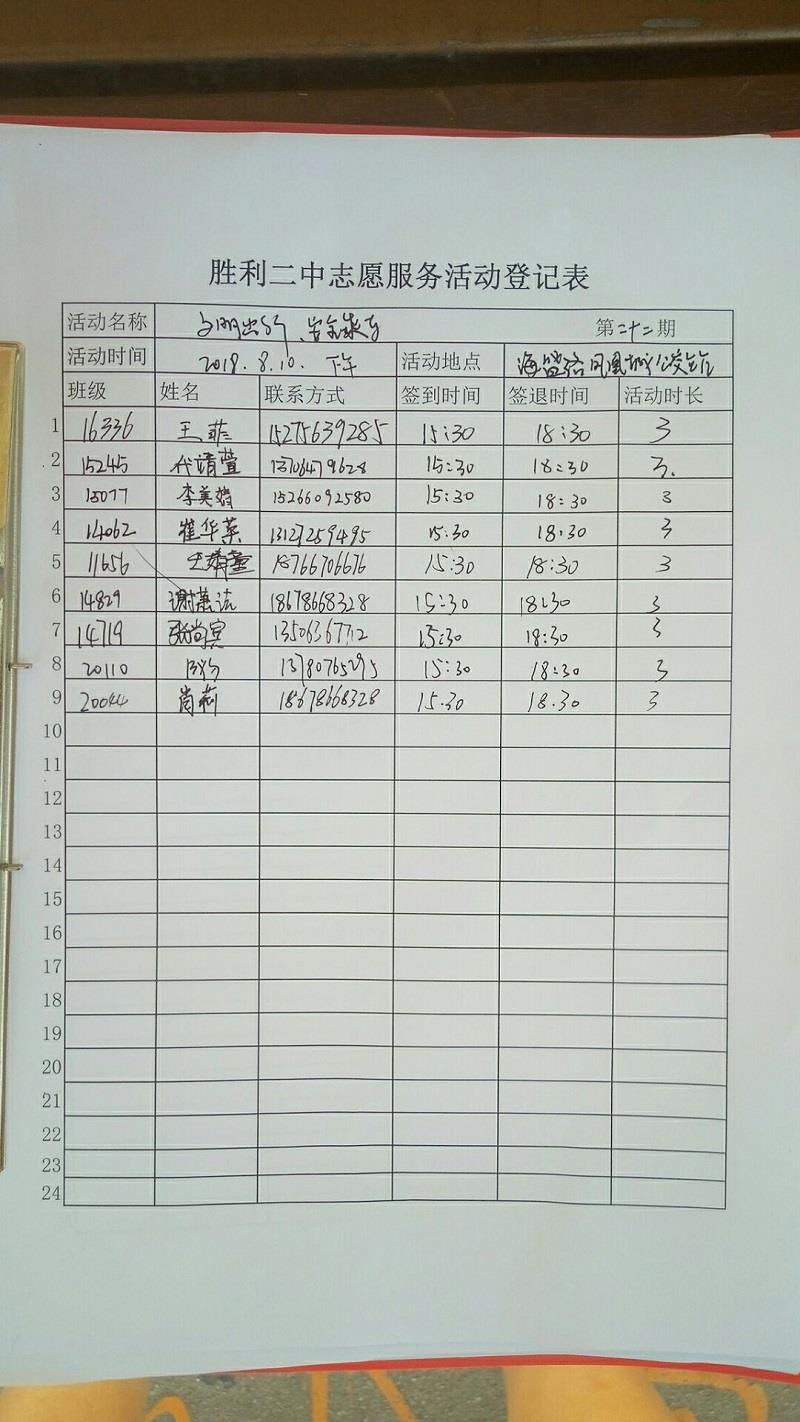 胜利二中志愿服务活动登记表
活动名称 文明出行、安全乘车 第二十二期
活动时间 2018.8.10. 下午 活动地点 凤凰城公交站
班级 姓名 联系方式 签到时间 签退时间 活动时长
1 16336 王菲 15275639285 15:30 18:30 3
2 15245 代靖萱 13706479628 15:30 18:30 3.
3 15077 李美娟 15266092580 15:30 18:30 3
4 14062 崔华英 13127259495 15:30 18:30 3
5 11656 18766706676 15:30 18:30 3
6 14829 18678668328 15:30 18:30 3
7 14719 张尚宾 15:30 18:30 3
8 20110 13780765295 15:30 18:30 3
9 20044 尚莉 18678668328 15.30 18.30 3
10
11
12
13
14
15
16
17
18
19
20
21
22
23
24